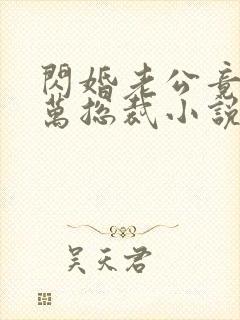 閃婚老公竟
萬總裁小說
吴天君